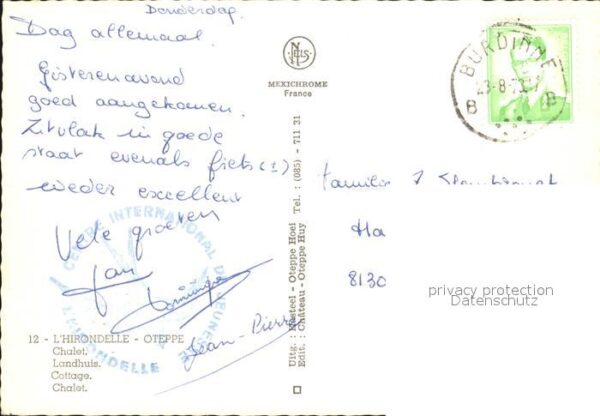 Donderdag.
Dag allemaal.
Gisterenavond
goed aangekomen.
Zitvlak in goede
staat evenals fiets (±)
weder excellent
Vele groeten
Jan
Dominique
Jean-Pierre
CENTRE INTERNATIONAL DE JEUNESSE
L'HIRONDELLE
12 - L'HIRONDELLE - OTEPPE
Chalet.
Landhuis.
Cottage.
Chalet.
NELS
MEXICHROME
France
Uitg. : Kasteel - Oteppe Hoei
Edit. : Château - Oteppe Huy
Tel. : (085) - 711 31
BURDINNE
23-8-
B B
familie
8130
privacy protection
Datenschutz